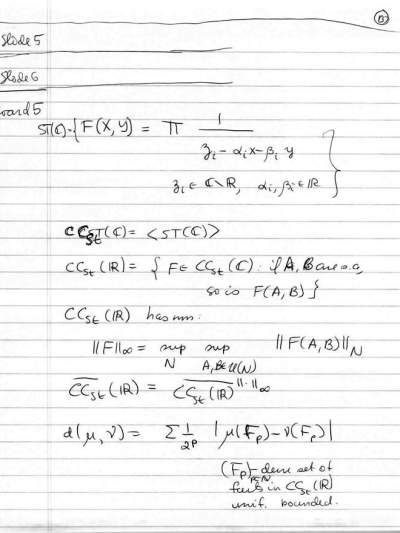 Slide 5
Slide 6
oard 5
ST(ℂ) = { F(X,Y) = Π 1
z_i − α_i x − β_i y
z_i ∈ ℂ\ℝ, α_i, β_i ∈ ℝ }
CC_St(ℂ) = <ST(ℂ)>
CC_St(ℝ) = { F ∈ CC_St(ℂ) : if A, B are s.a,
so is F(A,B) }
CC_St(ℝ) has nm:
||F||_∞ = sup sup ||F(A,B)||_N
N A,B∈ (N)
\overline{CC_St}(ℝ) = \overline{CC_St(ℝ)}^{||·||_∞}
d(μ,ν) = Σ 1/2^p |μ(F_p) − ν(F_p)|
(F_p)_{p∈ℕ} − dense set of
in CC_St(ℝ)
unif. bounded.